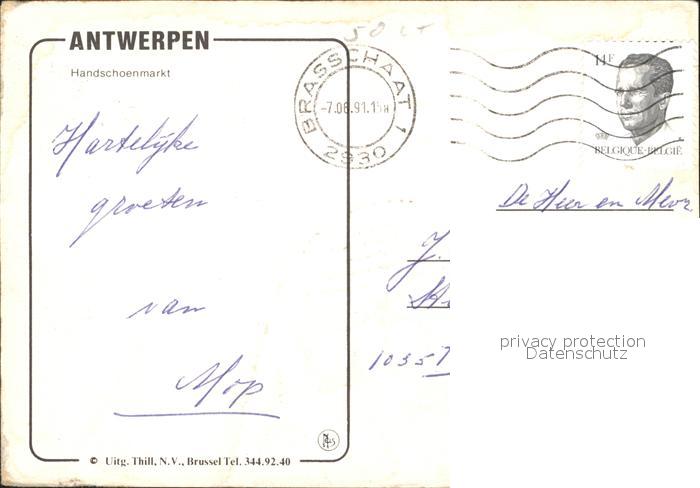 50 LT
ANTWERPEN
Handschoenmarkt
BRASSCHAAT 1
-7.08.91.15
2930
11F
BELGIQUE-BELGIË
Hartelijke
groeten
van
Mop
De Heer en Mevr.
J.
10357
privacy protection
Datenschutz
© Uitg. Thill, N.V., Brussel Tel. 344.92.40